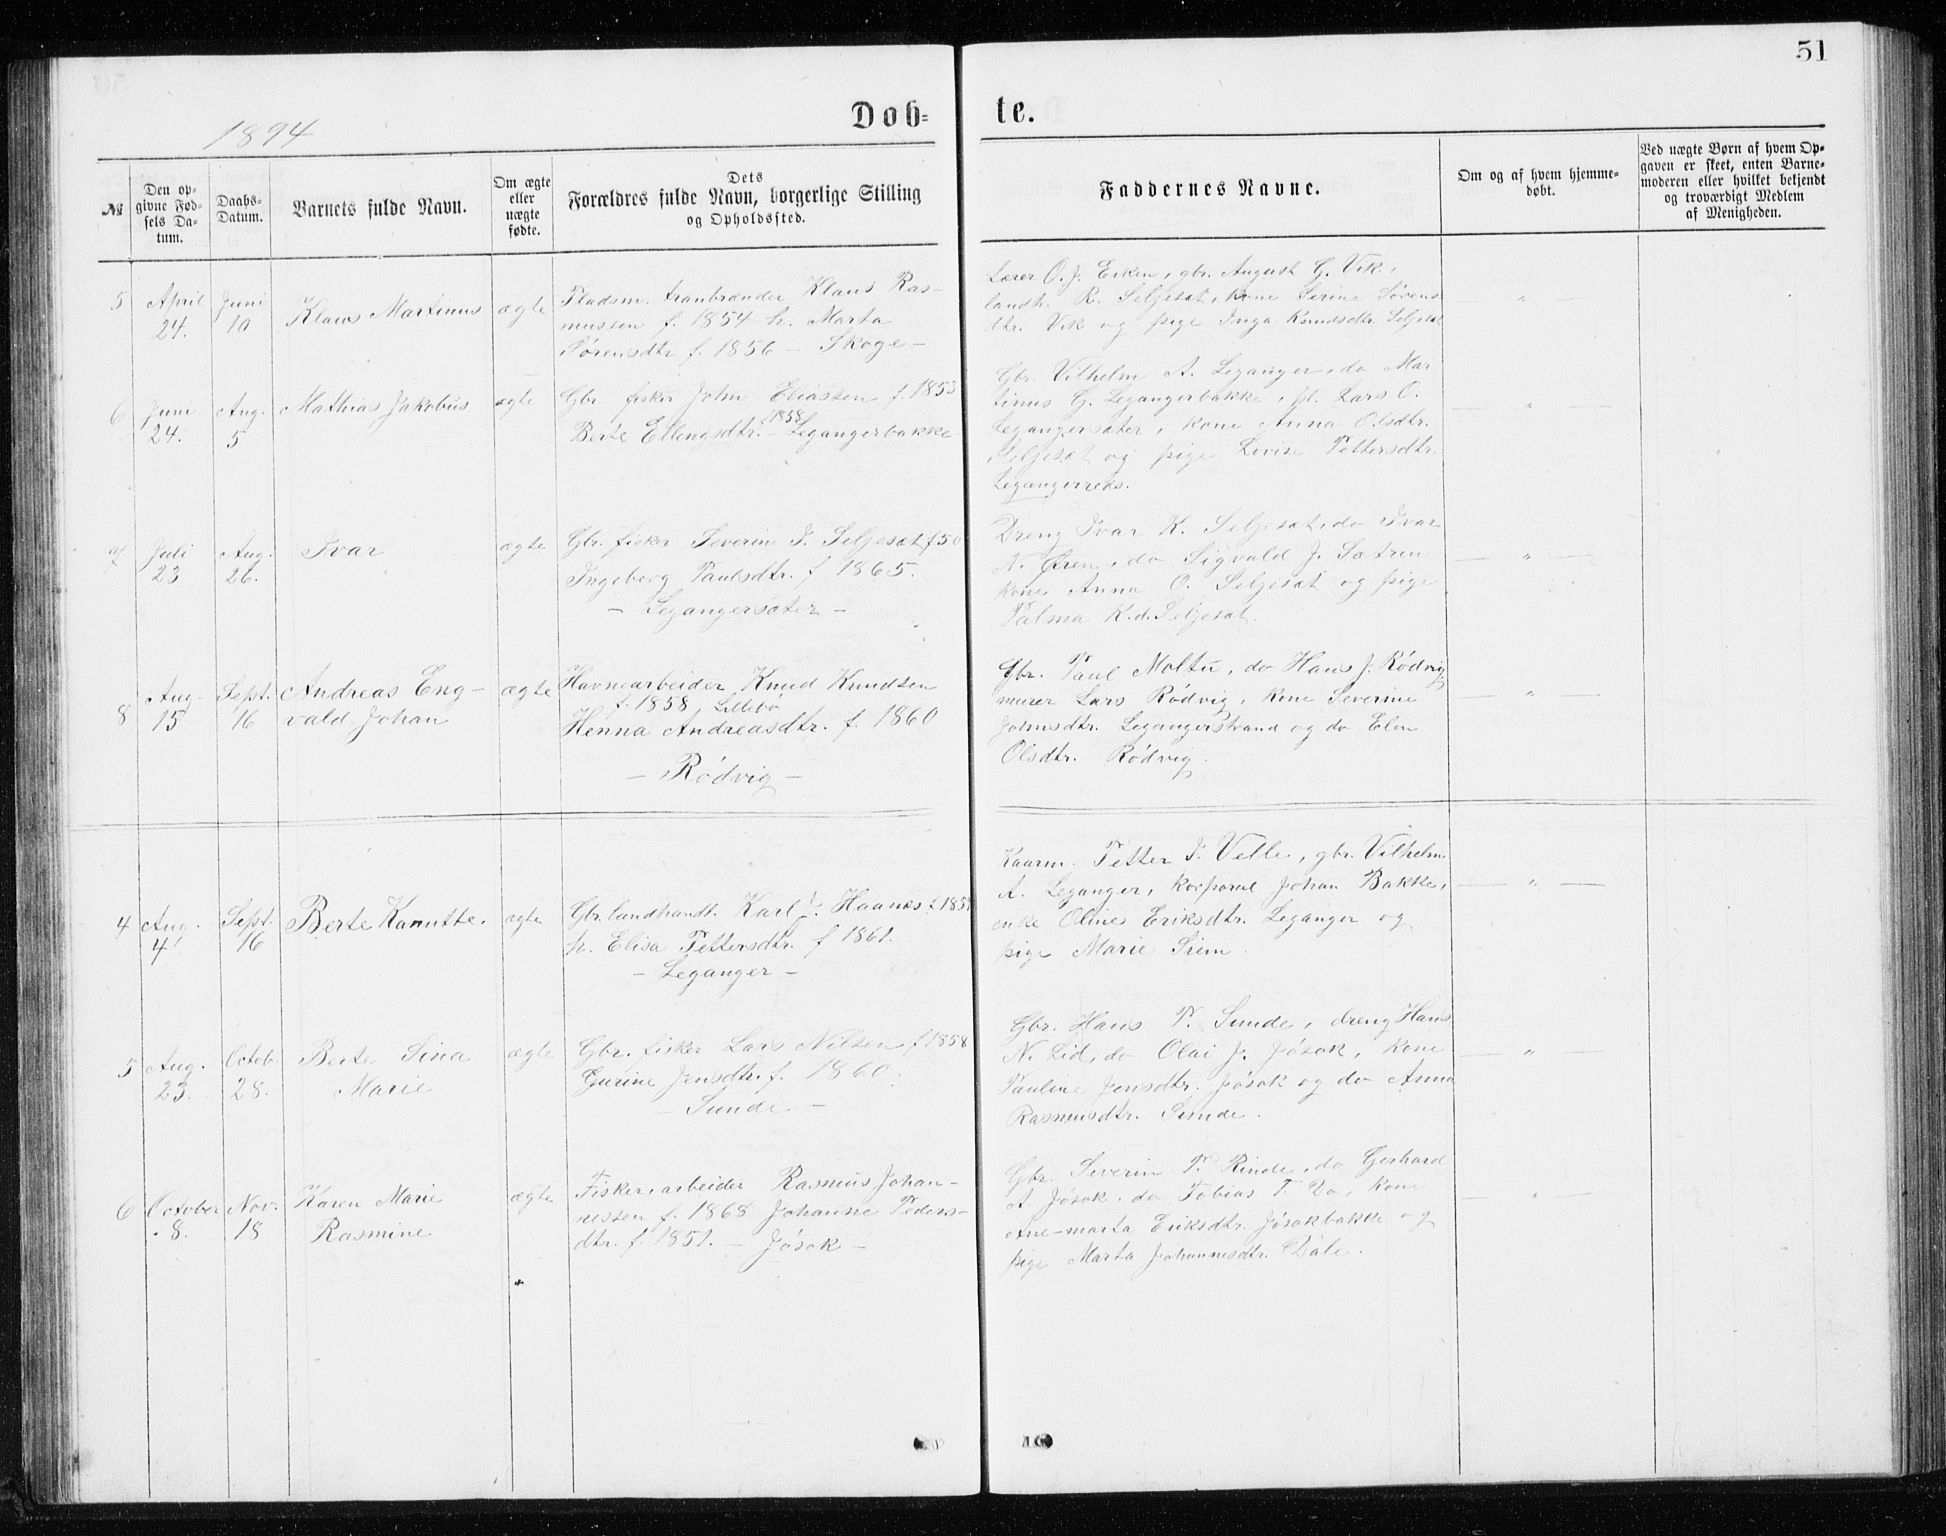 51
Dob=
te.
1894
№
Den op=
givne Fød=
sels Da=
tum.
Daabs=
Datum.
Barnets fulde Navn.
Om ægte
eller
uægte
fødte.
Dets
Forældres fulde Navn, borgerlige Stilling
og Opholdssted.
Faddernes Navne.
Om og af hvem hjemme=
døbt.
Ved uægte Børn af hvem Op=
gaven er skeet, enten Barne=
moderen eller hvilket bekjendt
og troværdigt Medlem
af Menigheden.
5
April
24.
Juni
10
Klaus Martinus
ægte
Pladsm. tranbrænder Klaus Ras-
mussen f. 1854 h. Marta
Sørensdtr f. 1856 - Skoge -
Lærer O. J. Eiken, gbr. August G. Vik,
landh. R. Seljesæt, kone Serine Sørens
dtr. Vik og pige Inga Knudsdtr. Seljesæt
6
Juni
24.
Aug.
5
Mathias Jakobus
ægte
Gbr. fisker John Eliassen f. 1853
Berte Ellingsdtr. f 1858 - Legangerbakke
Gbr. Vilhelm A. Leganger, do Mar
tinus G. Legangerbakke, pl. Lars O.
Legangersæter, kone Anna Olsdtr.
Seljesæt og pige Lovise Pettersdtr.
7
Juli
23
Aug.
26.
Ivar
ægte
Gbr. fisker Severin I. Seljesæt f 50
Ingeborg Paulsdtr. f 1865.
- Legangersæter -
Dreng Ivar K. Seljesæt, do Ivar
N. Øren, do Sigvald J. Sætren
kone Anna O. Seljesæt og pige
Palma K.d. Seljesæt.
8
Aug.
15
Sept.
16
Andreas Eng-
vald Johan
ægte
Havnearbeider Knud Knudsen
f. 1858, Lillebø
Henna Andreasdtr. f. 1860
- Rødvig -
Gbr. Paul Moltu, do Hans J. Rødvig,
murer Lars Rødvig, kone Severine
Johnsdtr. Legangerstrand og do Elen
Olsdtr. Rødvig.
4
Aug.
4
Sept.
16
Berte Kanutte.
ægte
Gbr. landhandl. Karl J. Haanes f 185
h. Elisa Pettersdtr. f 1861.
- Leganger -
Kaarm. Petter I. Velle, gbr. Vilhelm
A. Leganger, korporal Johan Bakke,
enke Oline Eriksdtr. Leganger og
pige Marie Siem.
5
Aug.
23.
Octob.
28.
Berte Sina
Marie
ægte
Gbr. fisker Lars Nilsen f 1858
Gurine Jensdtr. f. 1860.
- Sunde -
Gbr. Hans P. Sunde, dreng Hans
N. Lid, do Olai J. Jøsok, kone
Pauline Jensdtr. Jøsok og do Anna
Rasmusdtr. Sunde.
6
October
8.
Nov.
18
Karen Marie
Rasmine
ægte
Fisker, arbeider Rasmus Johan-
nessen f. 1868 Johanne Peders-
dtr. f. 1851. - Jøsok -
Gbr. Severin P. Rinde, do Gerhard
A Jøsok, do Tobias T. Do, kone
Ane-marta Eriksdtr. Jøsokbakke og
pige Marta Johannesdtr. Dále.